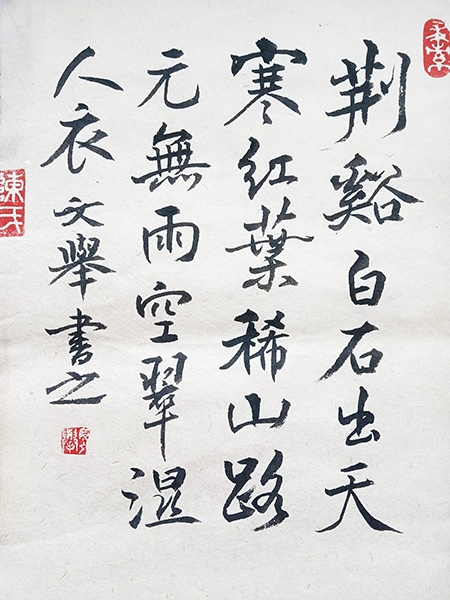 荆谿白石出天
寒红葉稀山路
元無雨空翠湿
人衣 文舉書之